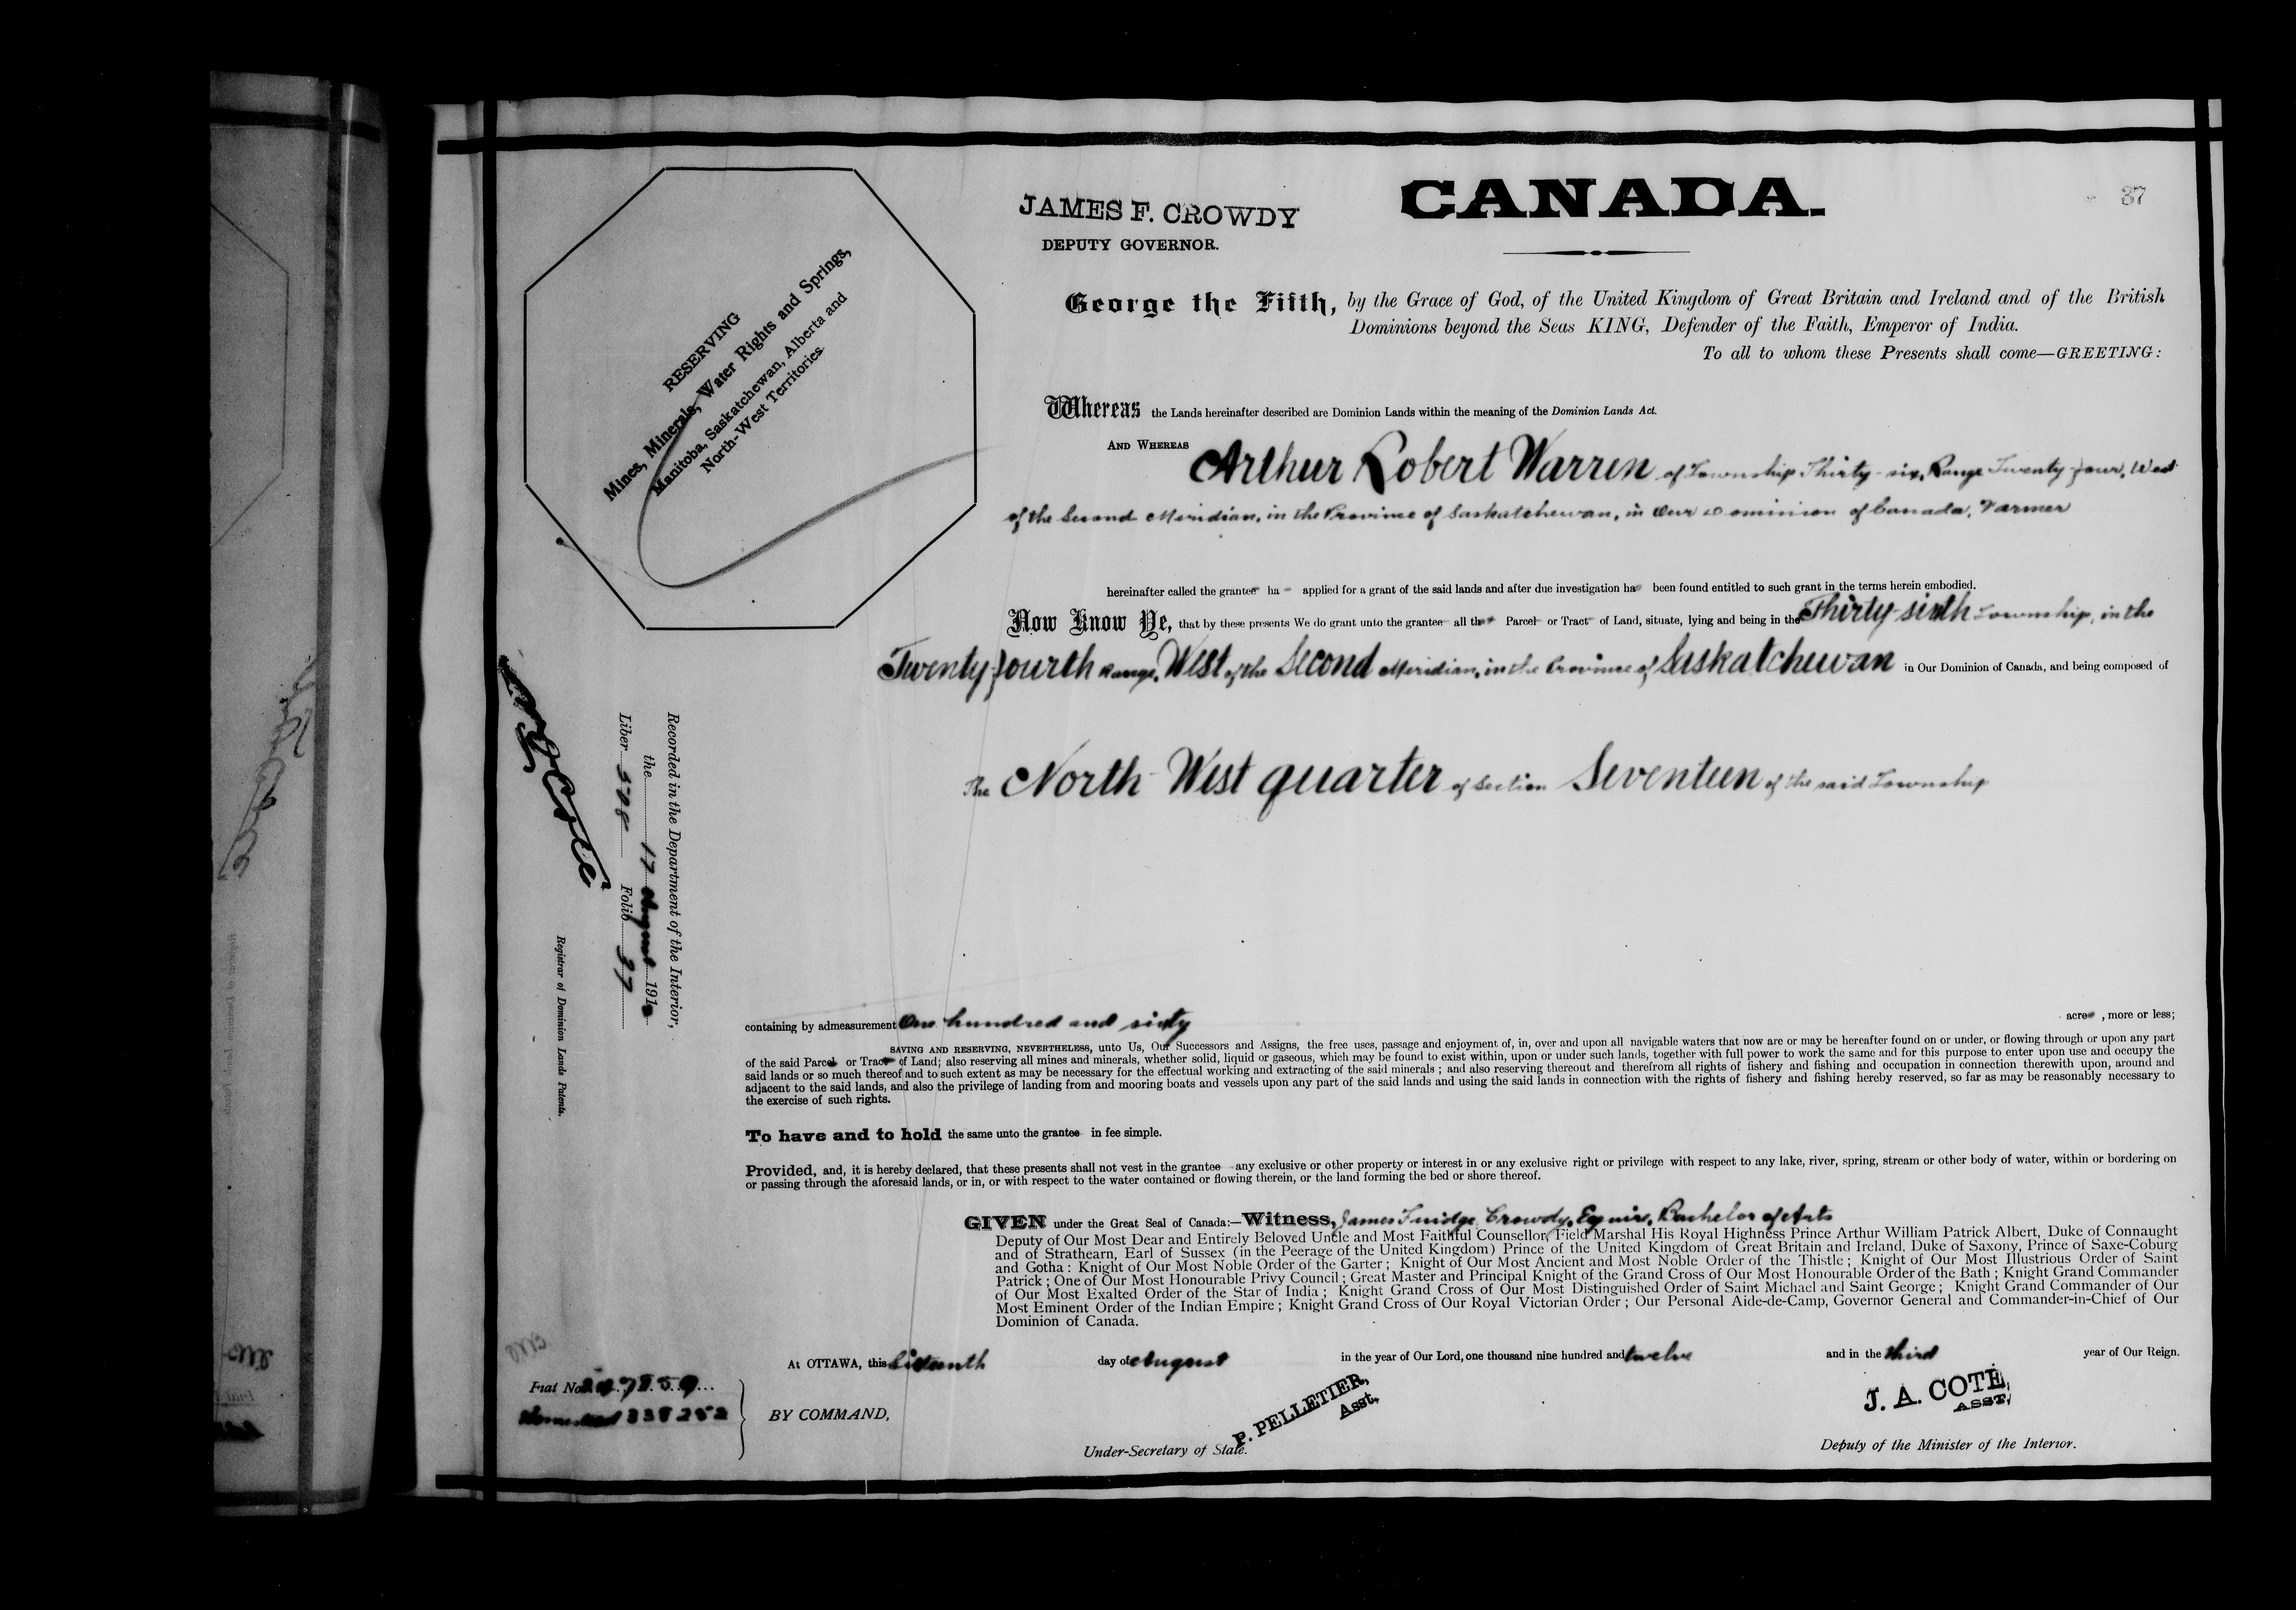 CANADA.
37
JAMES F. CROWDY
DEPUTY GOVERNOR.
RESERVING
Mines, Minerals, Water Rights and Springs,
Manitoba, Saskatchewan, Alberta and
North-West Territories.
George the Fifth, by the Grace of God, of the United Kingdom of Great Britain and Ireland and of the British
Dominions beyond the Seas KING, Defender of the Faith, Emperor of India.
To all to whom these Presents shall come—GREETING:
Whereas the Lands hereinafter described are Dominion Lands within the meaning of the Dominion Lands Act.
AND WHEREAS Arthur Robert Warren of Township Thirty-six, Range Twenty-four, West
of the Second Meridian, in the Province of Saskatchewan, in Our Dominion of Canada, Farmer
hereinafter called the grantee has applied for a grant of the said lands and after due investigation has been found entitled to such grant in the terms herein embodied.
Now Know Ye, that by these presents We do grant unto the grantee all that Parcel or Tract of Land, situate, lying and being in the Thirty-sixth Township, in the
Twenty-fourth Range, West of the Second Meridian, in the Province of Saskatchewan in Our Dominion of Canada, and being composed of
The North-West quarter of Section Seventeen of the said Township
Recorded in the Department of the Interior,
the 17 August 191
Liber 508 Folio 37
Registrar of Dominion Lands Patents.
containing by admeasurement One hundred and sixty acres, more or less;
SAVING AND RESERVING, NEVERTHELESS, unto Us, Our Successors and Assigns, the free uses, passage and enjoyment of, in, over and upon all navigable waters that now are or may be hereafter found on or under, or flowing through or upon any part
of the said Parcel or Tract of Land; also reserving all mines and minerals, whether solid, liquid or gaseous, which may be found to exist within, upon or under such lands, together with full power to work the same and for this purpose to enter upon use and occupy the
said lands or so much thereof and to such extent as may be necessary for the effectual working and extracting of the said minerals; and also reserving thereout and therefrom all rights of fishery and fishing and occupation in connection therewith upon, around and
adjacent to the said lands, and also the privilege of landing from and mooring boats and vessels upon any part of the said lands and using the said lands in connection with the rights of fishery and fishing hereby reserved, so far as may be reasonably necessary to
the exercise of such rights.
To have and to hold the same unto the grantee in fee simple.
Provided, and, it is hereby declared, that these presents shall not vest in the grantee any exclusive or other property or interest in or any exclusive right or privilege with respect to any lake, river, spring, stream or other body of water, within or bordering on
or passing through the aforesaid lands, or in, or with respect to the water contained or flowing therein, or the land forming the bed or shore thereof.
GIVEN under the Great Seal of Canada:—Witness, James Fuidge Crowdy, Esquire, Bachelor of Arts
Deputy of Our Most Dear and Entirely Beloved Uncle and Most Faithful Counsellor, Field Marshal His Royal Highness Prince Arthur William Patrick Albert, Duke of Connaught
and of Strathearn, Earl of Sussex (in the Peerage of the United Kingdom) Prince of the United Kingdom of Great Britain and Ireland, Duke of Saxony, Prince of Saxe-Coburg
and Gotha: Knight of Our Most Noble Order of the Garter; Knight of Our Most Ancient and Most Noble Order of the Thistle; Knight of Our Most Illustrious Order of Saint
Patrick; One of Our Most Honourable Privy Council; Great Master and Principal Knight of the Grand Cross of Our Most Honourable Order of the Bath; Knight Grand Commander
of Our Most Exalted Order of the Star of India; Knight Grand Cross of Our Most Distinguished Order of Saint Michael and Saint George; Knight Grand Commander of Our
Most Eminent Order of the Indian Empire; Knight Grand Cross of Our Royal Victorian Order; Our Personal Aide-de-Camp, Governor General and Commander-in-Chief of Our
Dominion of Canada.
At OTTAWA, this Sixteenth day of August in the year of Our Lord, one thousand nine hundred and twelve and in the third year of Our Reign.
Fiat No.
Homestead
BY COMMAND,
P. PELLETIER,
Asst.
Under-Secretary of State.
J. A. COTÉ,
ASST.
Deputy of the Minister of the Interior.